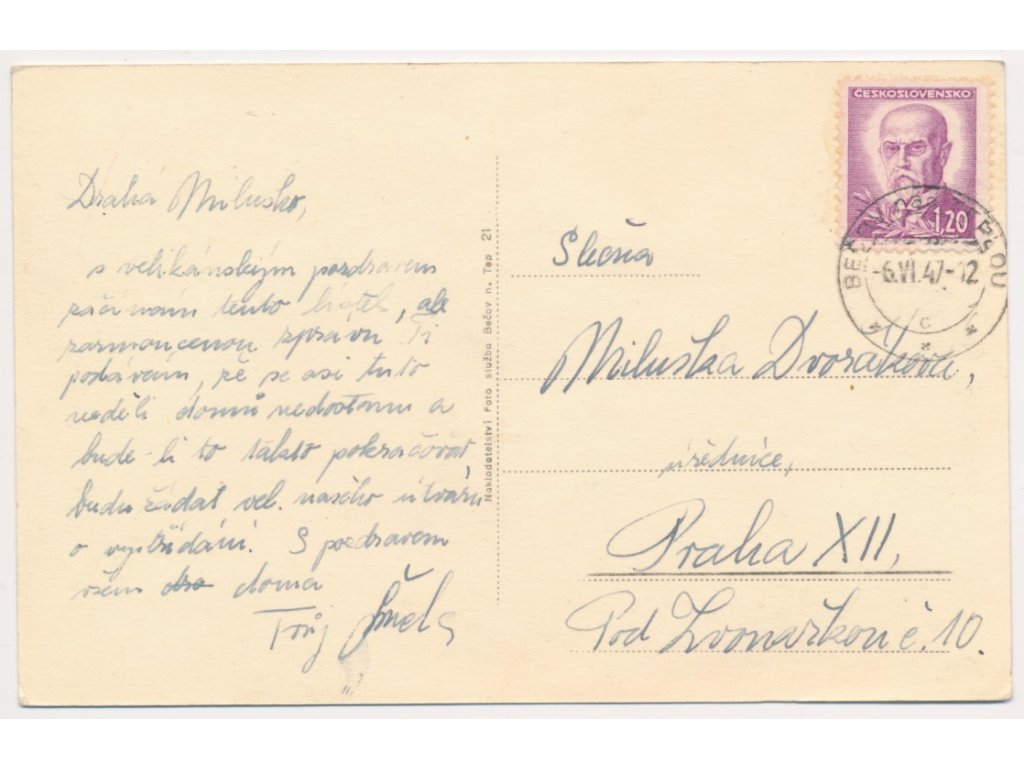 Drahá Miluško,
s velikánským pozdravem
začínám tento lístek, ale
zarmoucenou zprávu Ti
podávám, že se asi tuto
neděli domů nedostanu a
bude-li to takto pokračovat,
budu žádat vel. našeho útvaru
o vystřídání. S pozdravem
všem doma
Tvůj
Nakladatelství Foto služba Bečov n. Tep 21
ČESKOSLOVENSKO
1,20
-6.VI.47-12
c
Slečna
Miluška Dvořáková,
úřednice,
Praha XII,
Pod Zvonařkou č. 10.